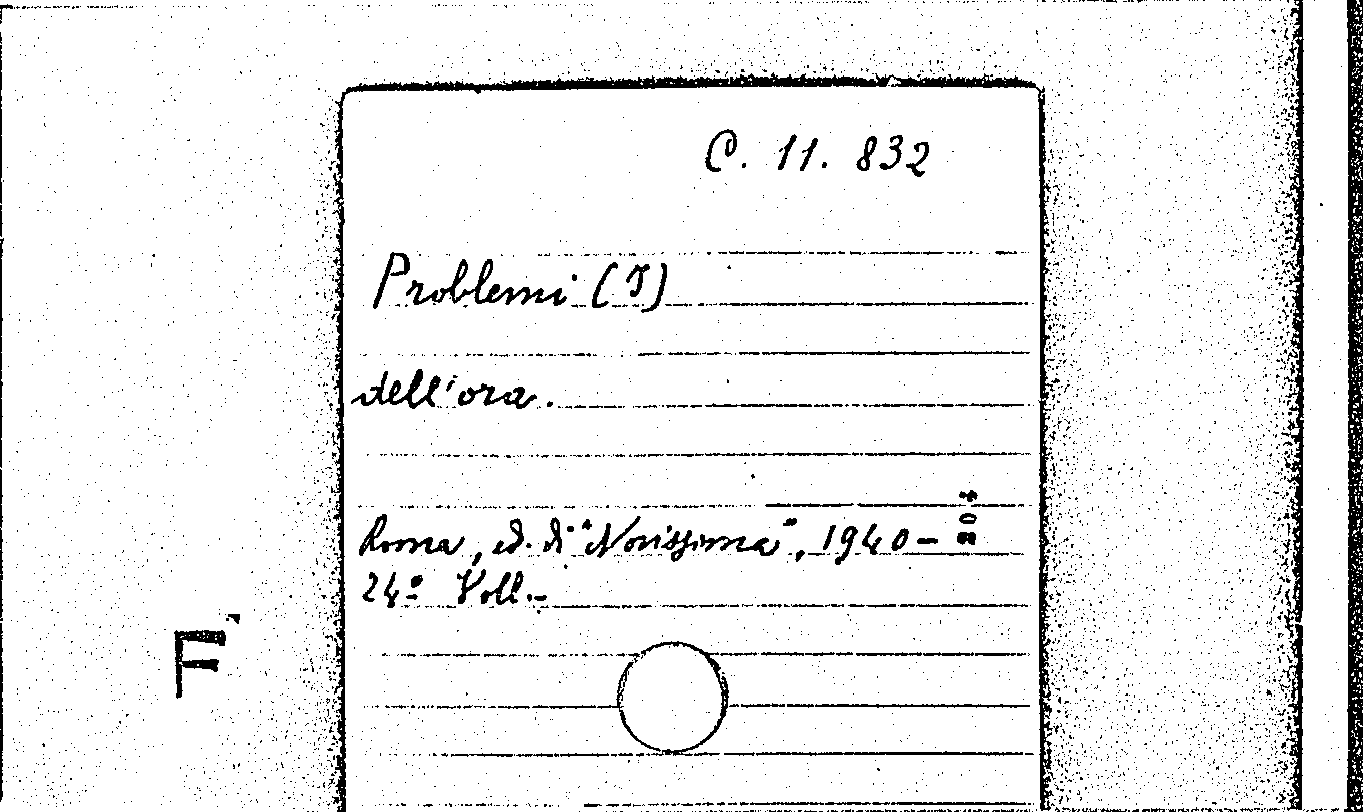 C. 11. 832
Problemi (I)
dell'ora.
Roma, ed. di "Novissima", 1940-
24º Voll.-
F